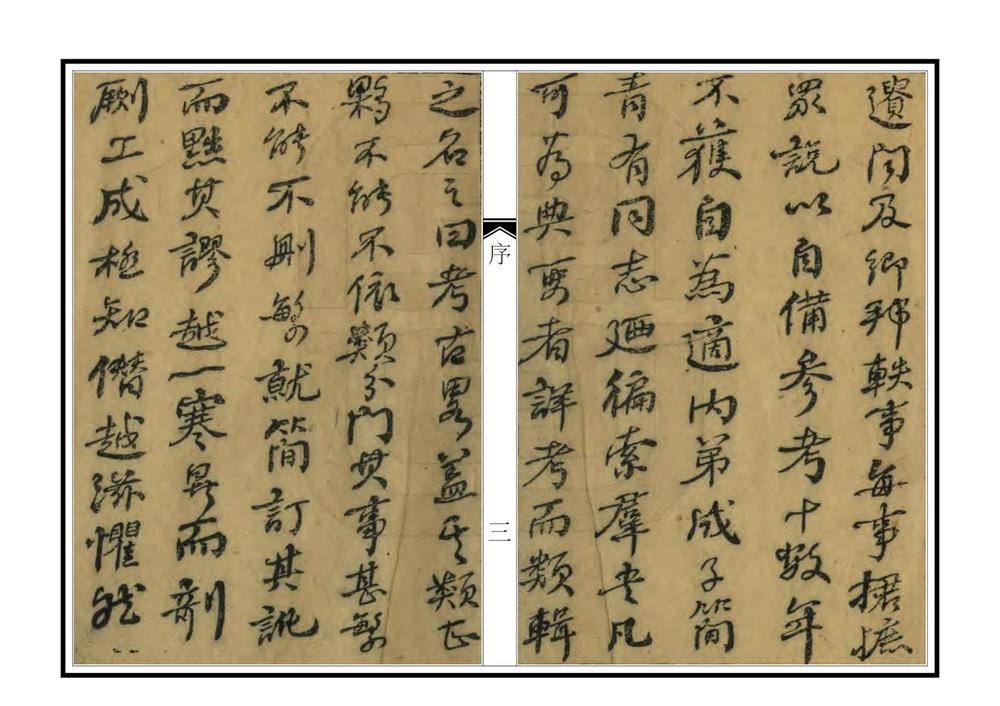 遺聞及鄉邦軼事每事捃摭
眾說以自備參考十數年
不獲自為適內弟成子簡
青有同志廼徧索羣書凡
可為典要者詳考而類輯
序
三
之名之曰考古畧蓋其類甚
夥不能不依類分門其事甚繁
不能不刪繁就簡訂其訛
而黜其謬越一寒暑而剞
劂工成極知僭越滋懼然